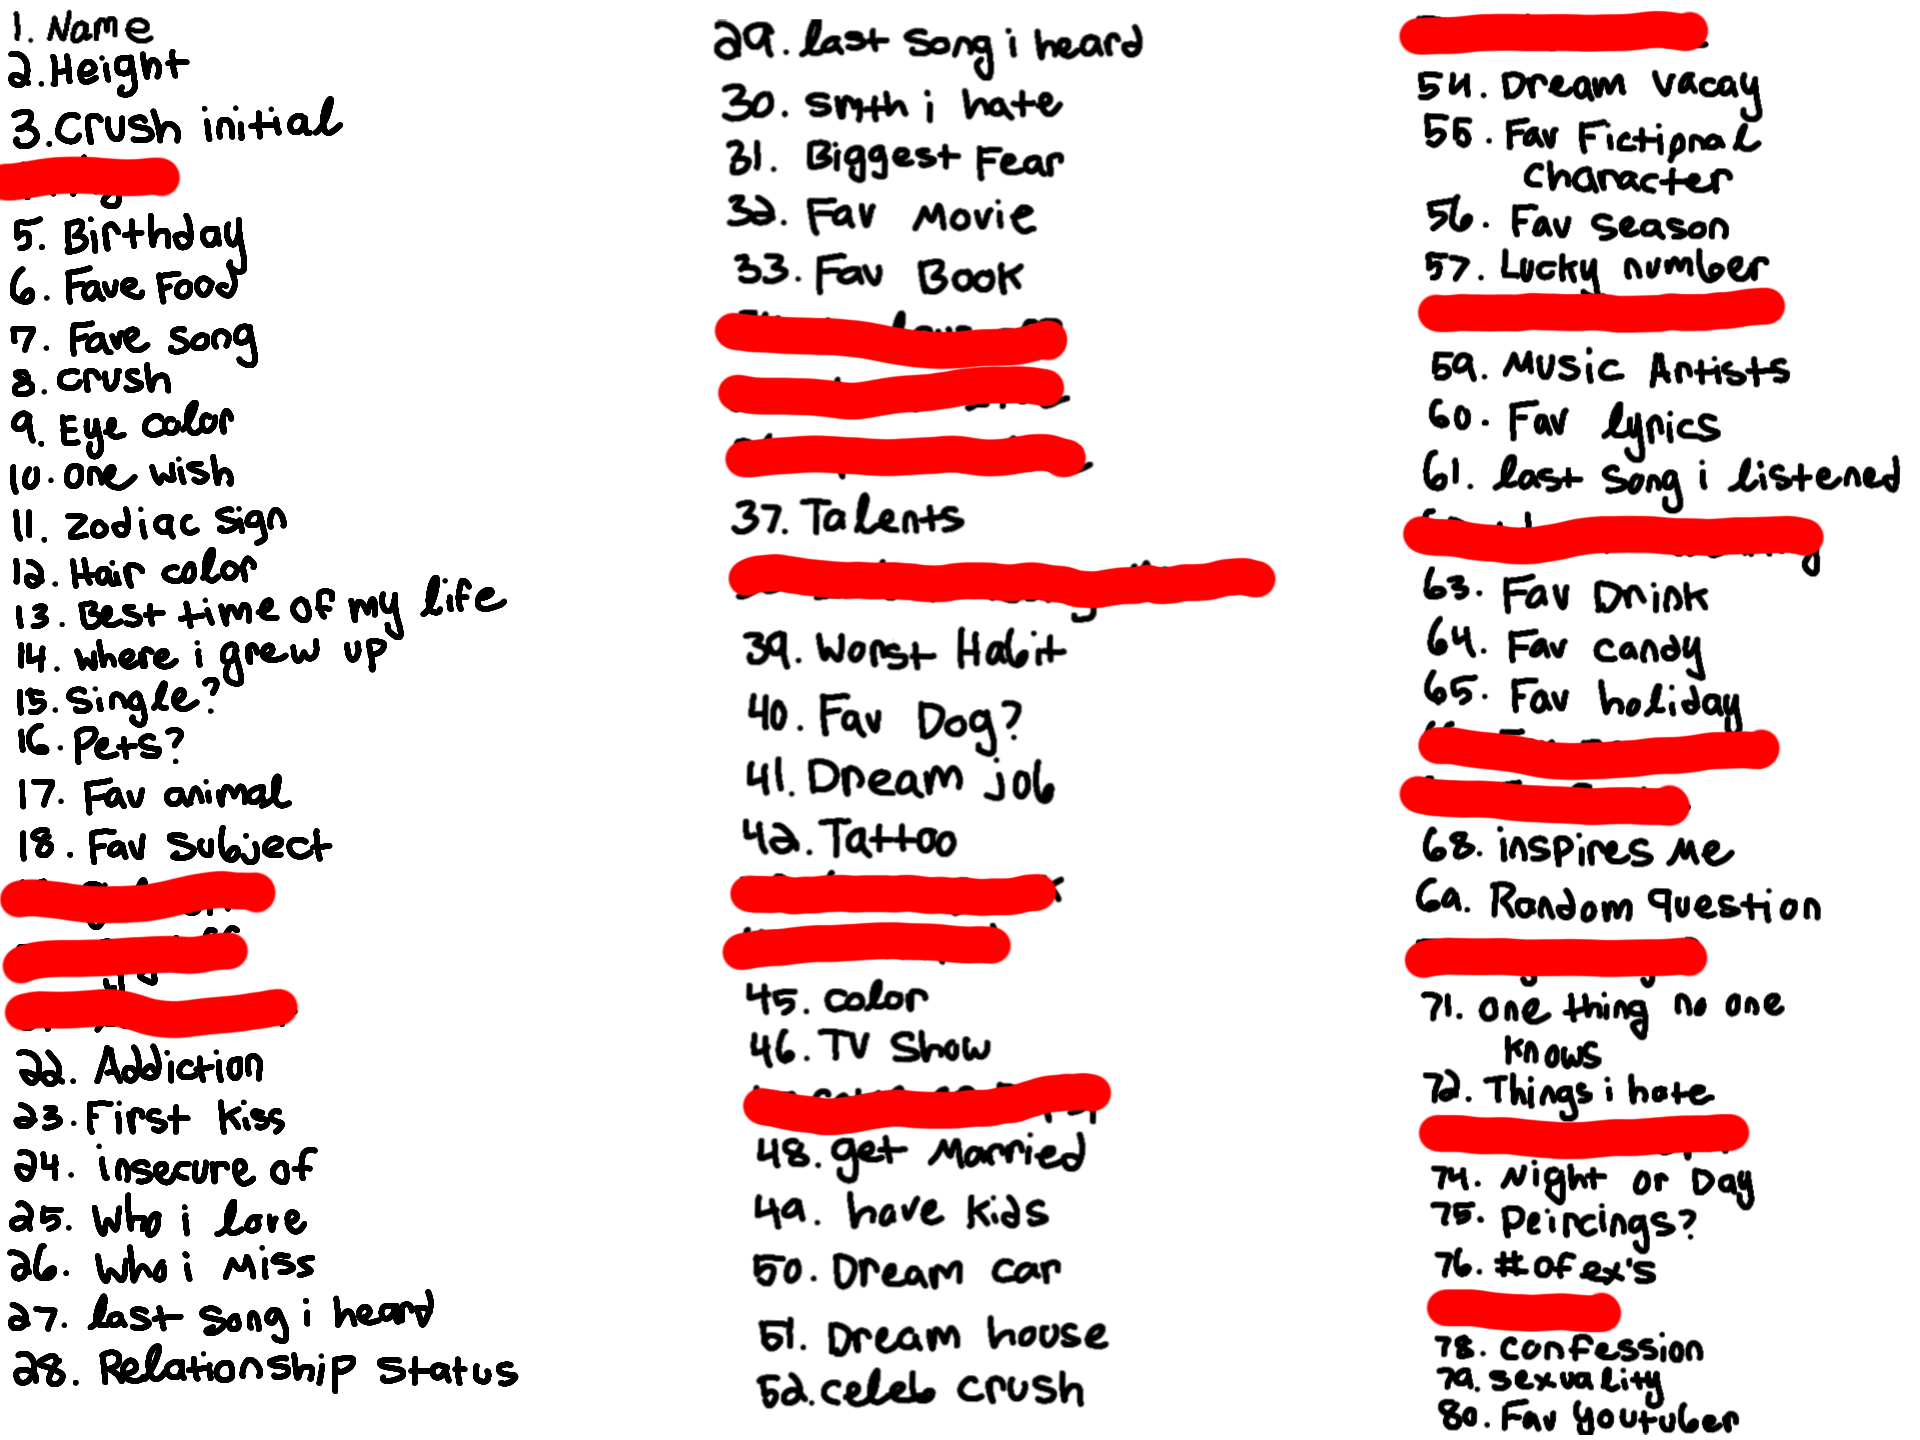 1. Name
2. Height
3. Crush initial
5. Birthday
6. Fave Food
7. Fave song
8. crush
9. Eye color
10. one wish
11. zodiac sign
12. Hair color
13. Best time of my life
14. where i grew up
15. single?
16. Pets?
17. Fav animal
18. Fav subject
22. Addiction
23. First kiss
24. insecure of
25. Who i love
26. Who i miss
27. last song i heard
28. Relationship status
29. last song i heard
30. smth i hate
31. Biggest Fear
32. Fav Movie
33. Fav Book
37. Talents
39. Worst Habit
40. Fav Dog?
41. Dream job
42. Tattoo
45. color
46. TV Show
48. get Married
49. have kids
50. Dream car
51. Dream house
52. celeb crush
54. Dream vacay
55. Fav Fictional
character
56. Fav season
57. Lucky number
59. Music Artists
60. Fav lyrics
61. last song i listened
63. Fav Drink
64. Fav candy
65. Fav holiday
68. inspires me
69. Random question
71. one thing no one
knows
72. Things i hate
74. Night or Day
75. Peircings?
76. # of ex's
78. confession
79. sexuality
80. Fav youtuber